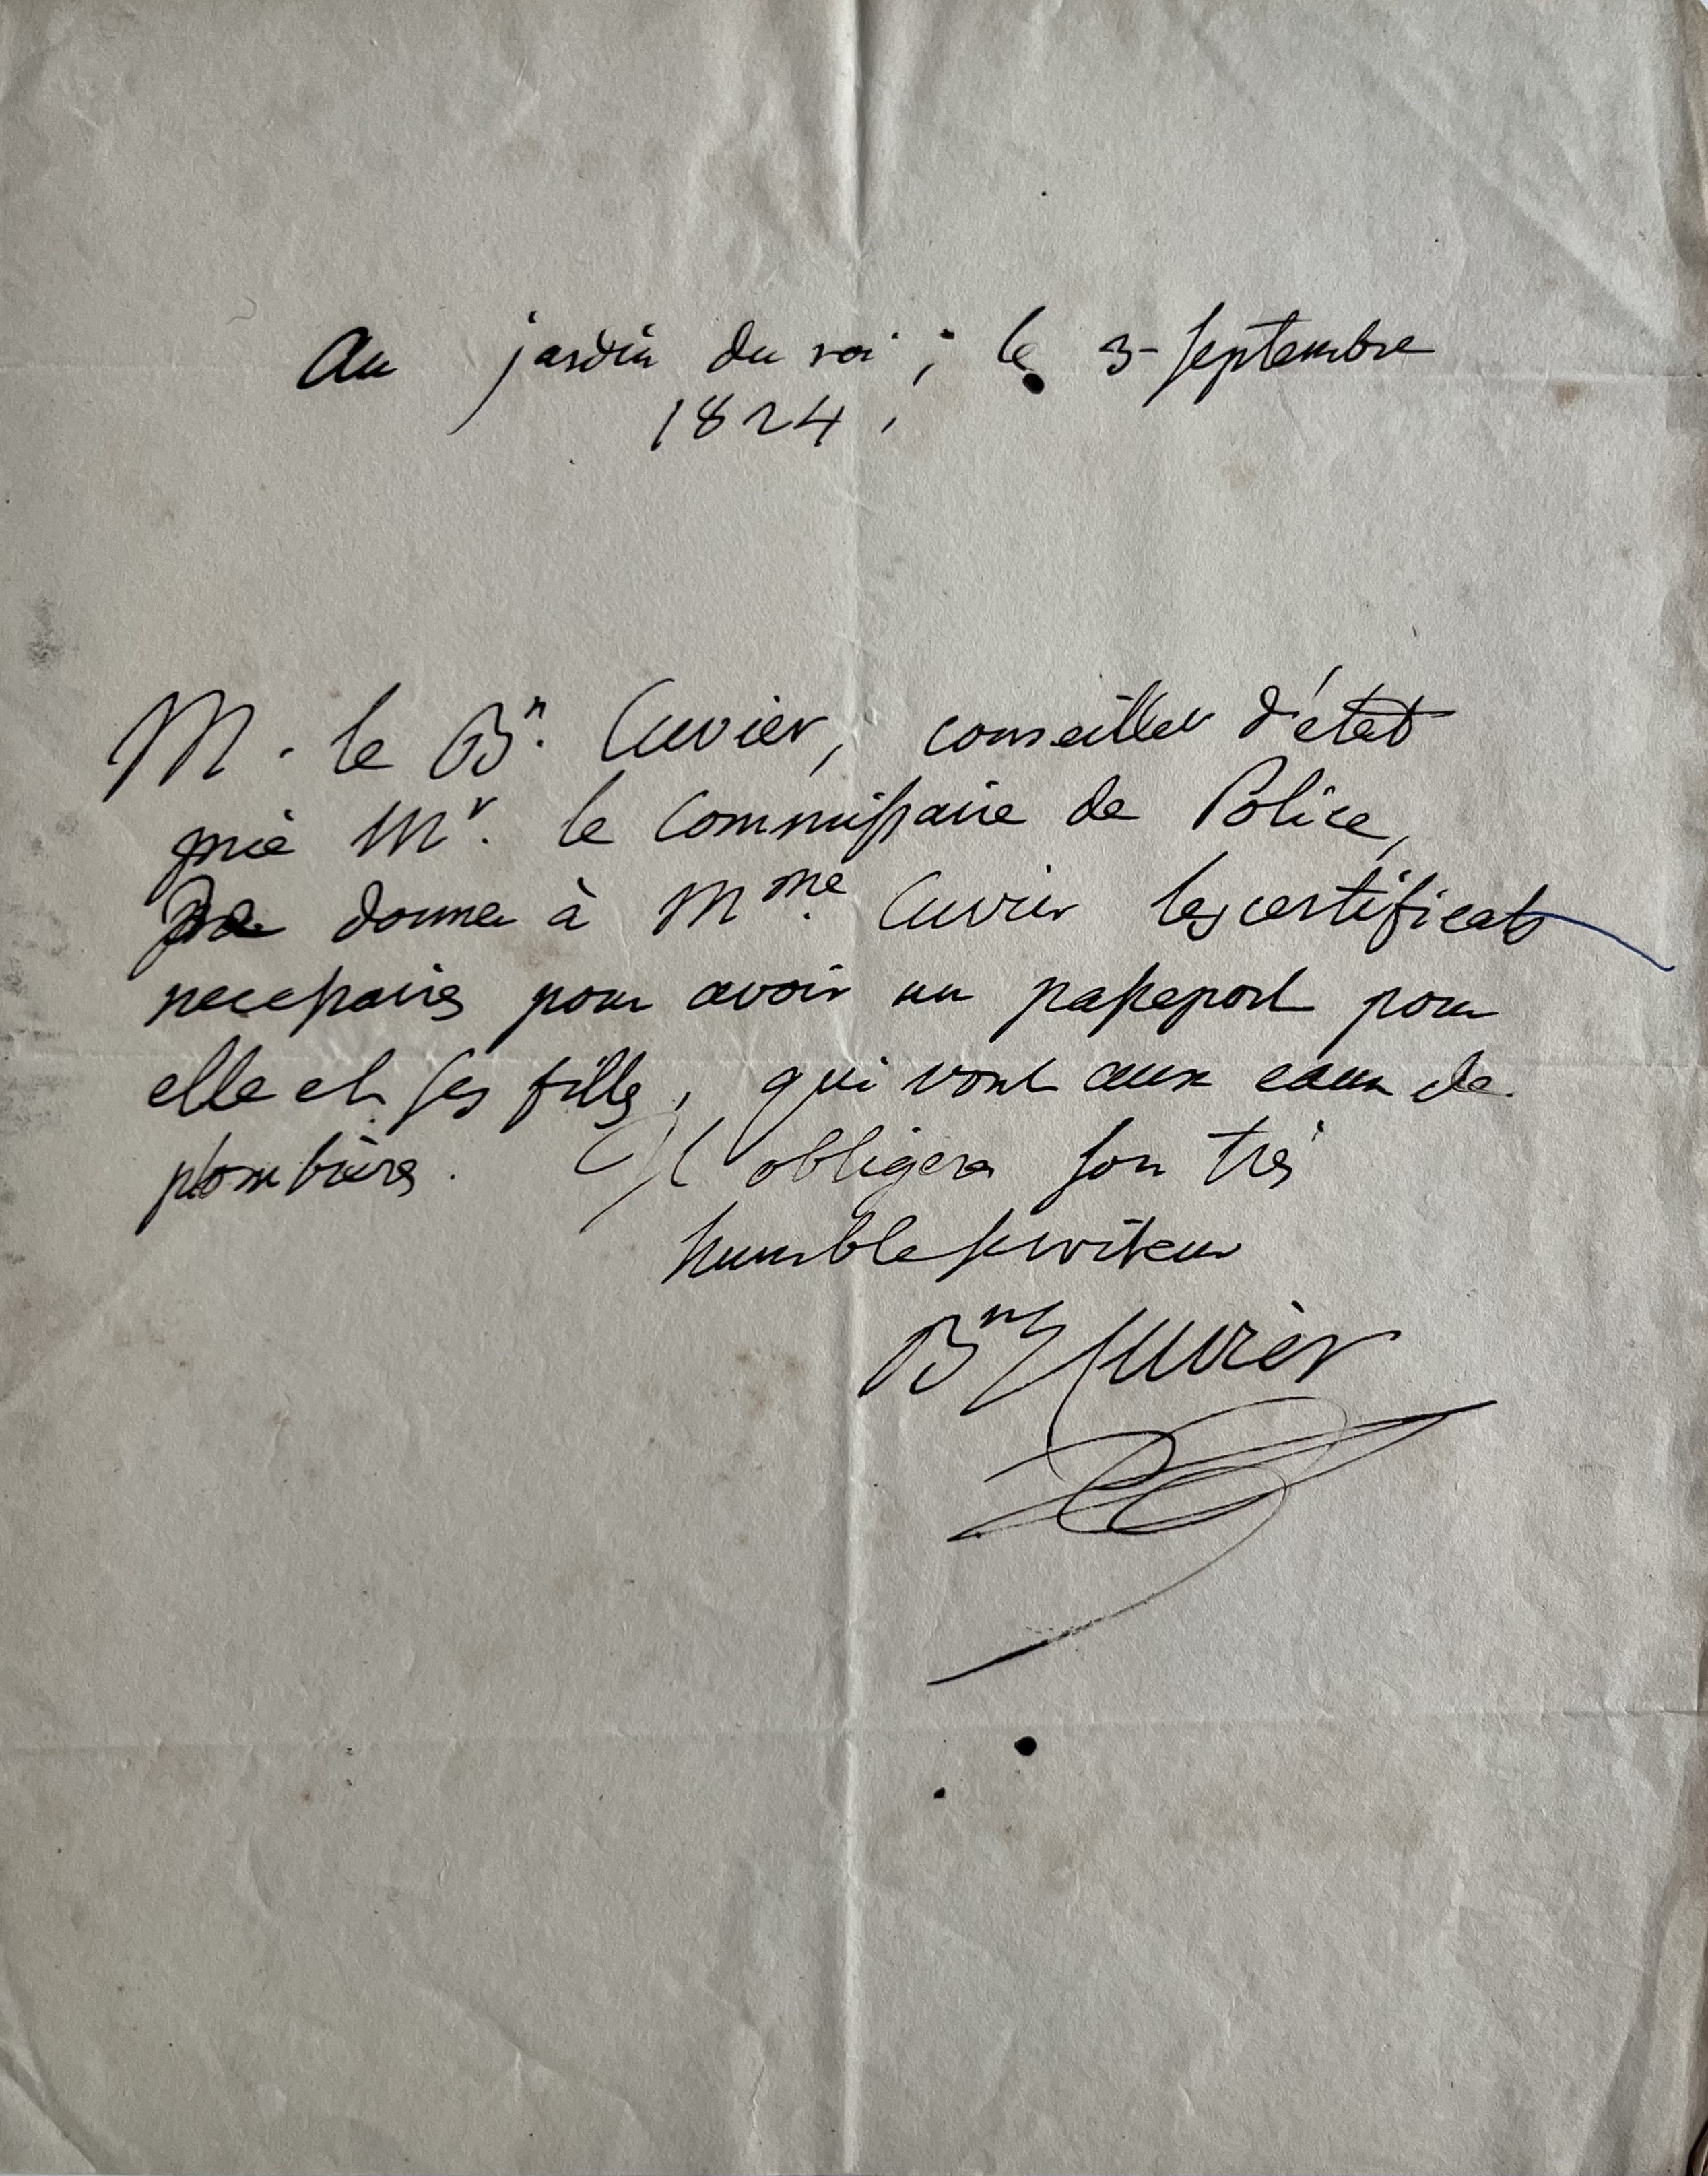 Au jardin du roi, le 3 septembre
1824,
M. le Bn. Cuvier, conseiller d'état
prie Mr. le Commissaire de Police,
de donner à Mme. Cuvier les certificats
necessaires pour avoir un passeport pour
elle et ses filles, qui vont aux eaux de
plombières. Il obligera son très
humble serviteur
Bn Cuvier